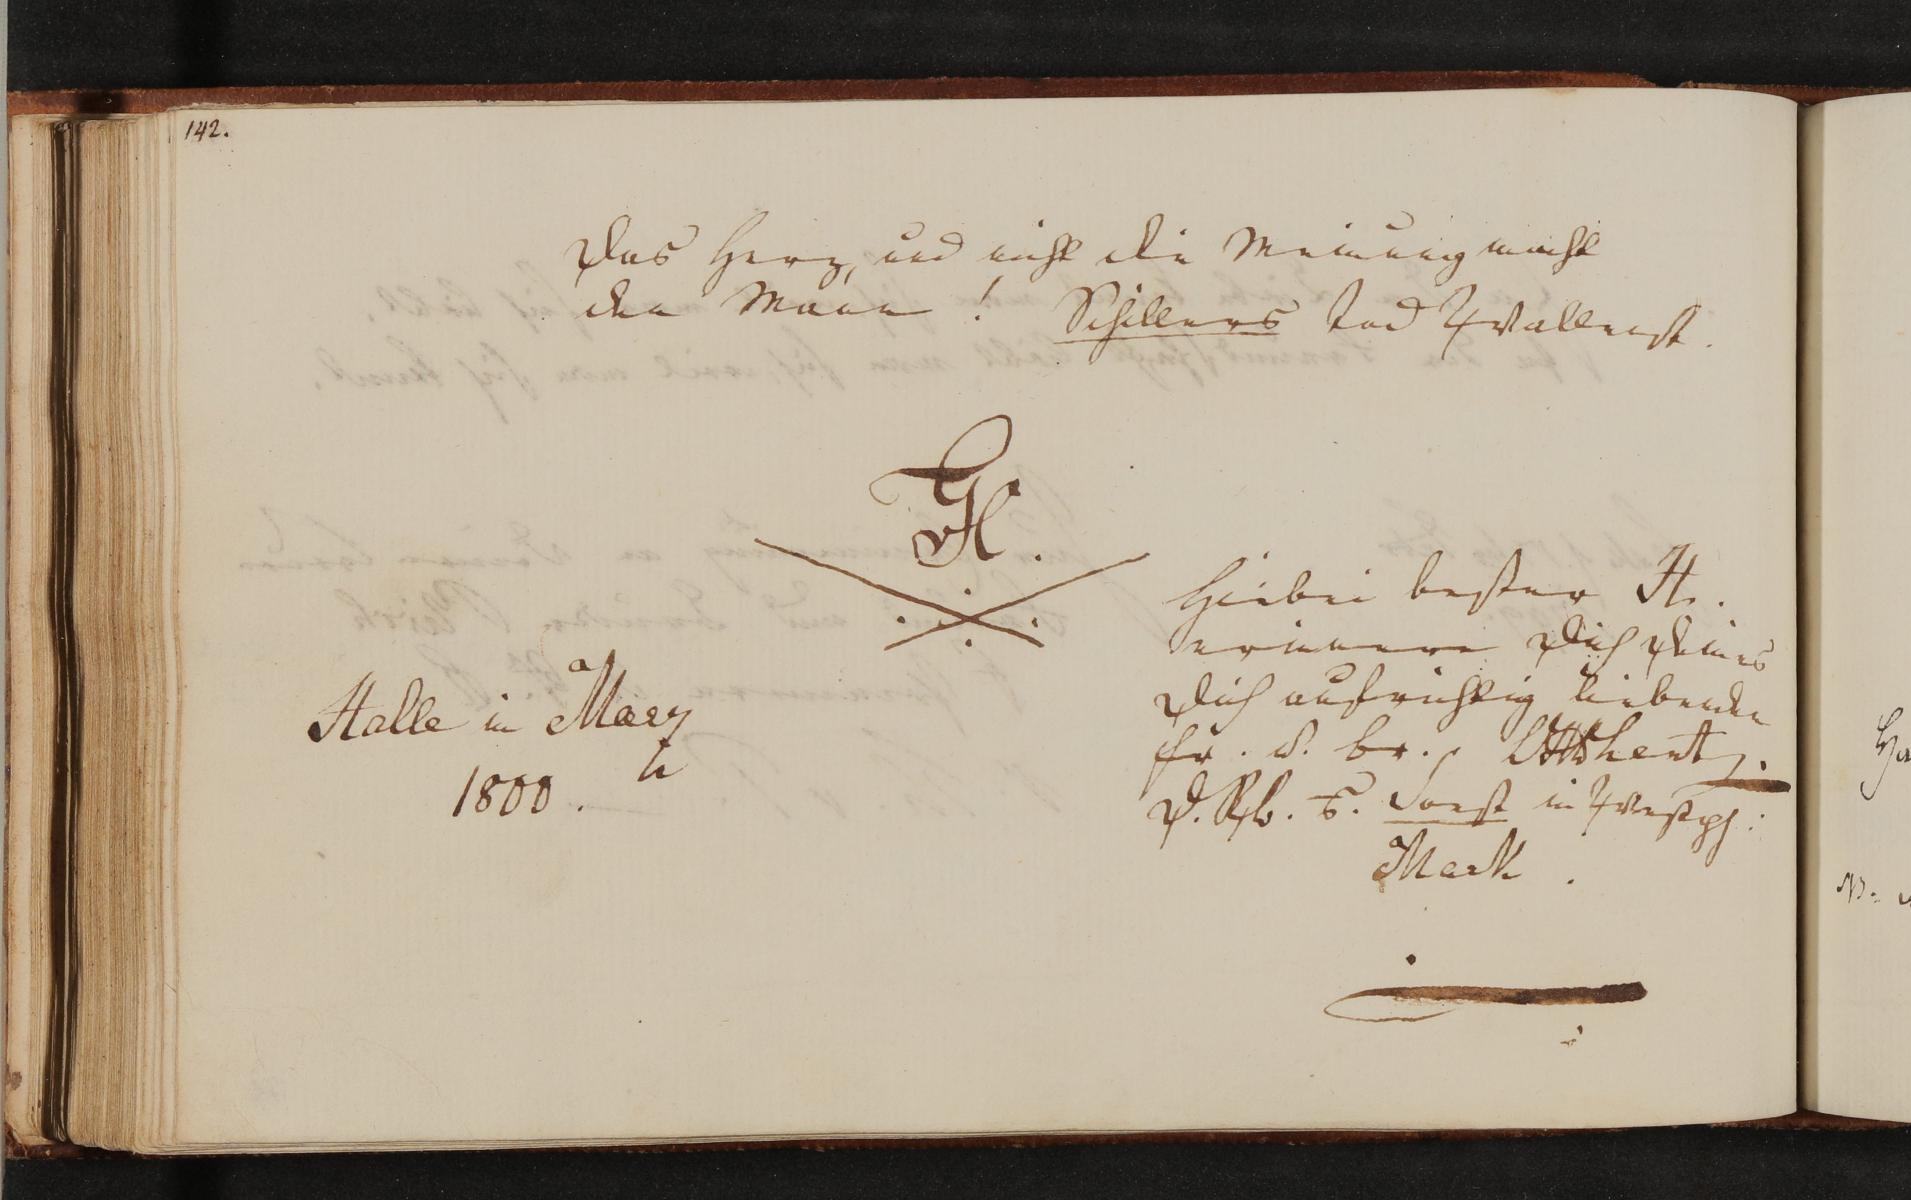 142.
Das Herz, und nicht die Meinung macht
den Mann! Schillers Tod Wallenst.
Hiebei bester H.
erinnere Dich Deines
Dich aufrichtig liebenden
Fr. u. Br.
Halle im Maerz
1800.
D. R. B. a. Soest in Westph:
Mark.